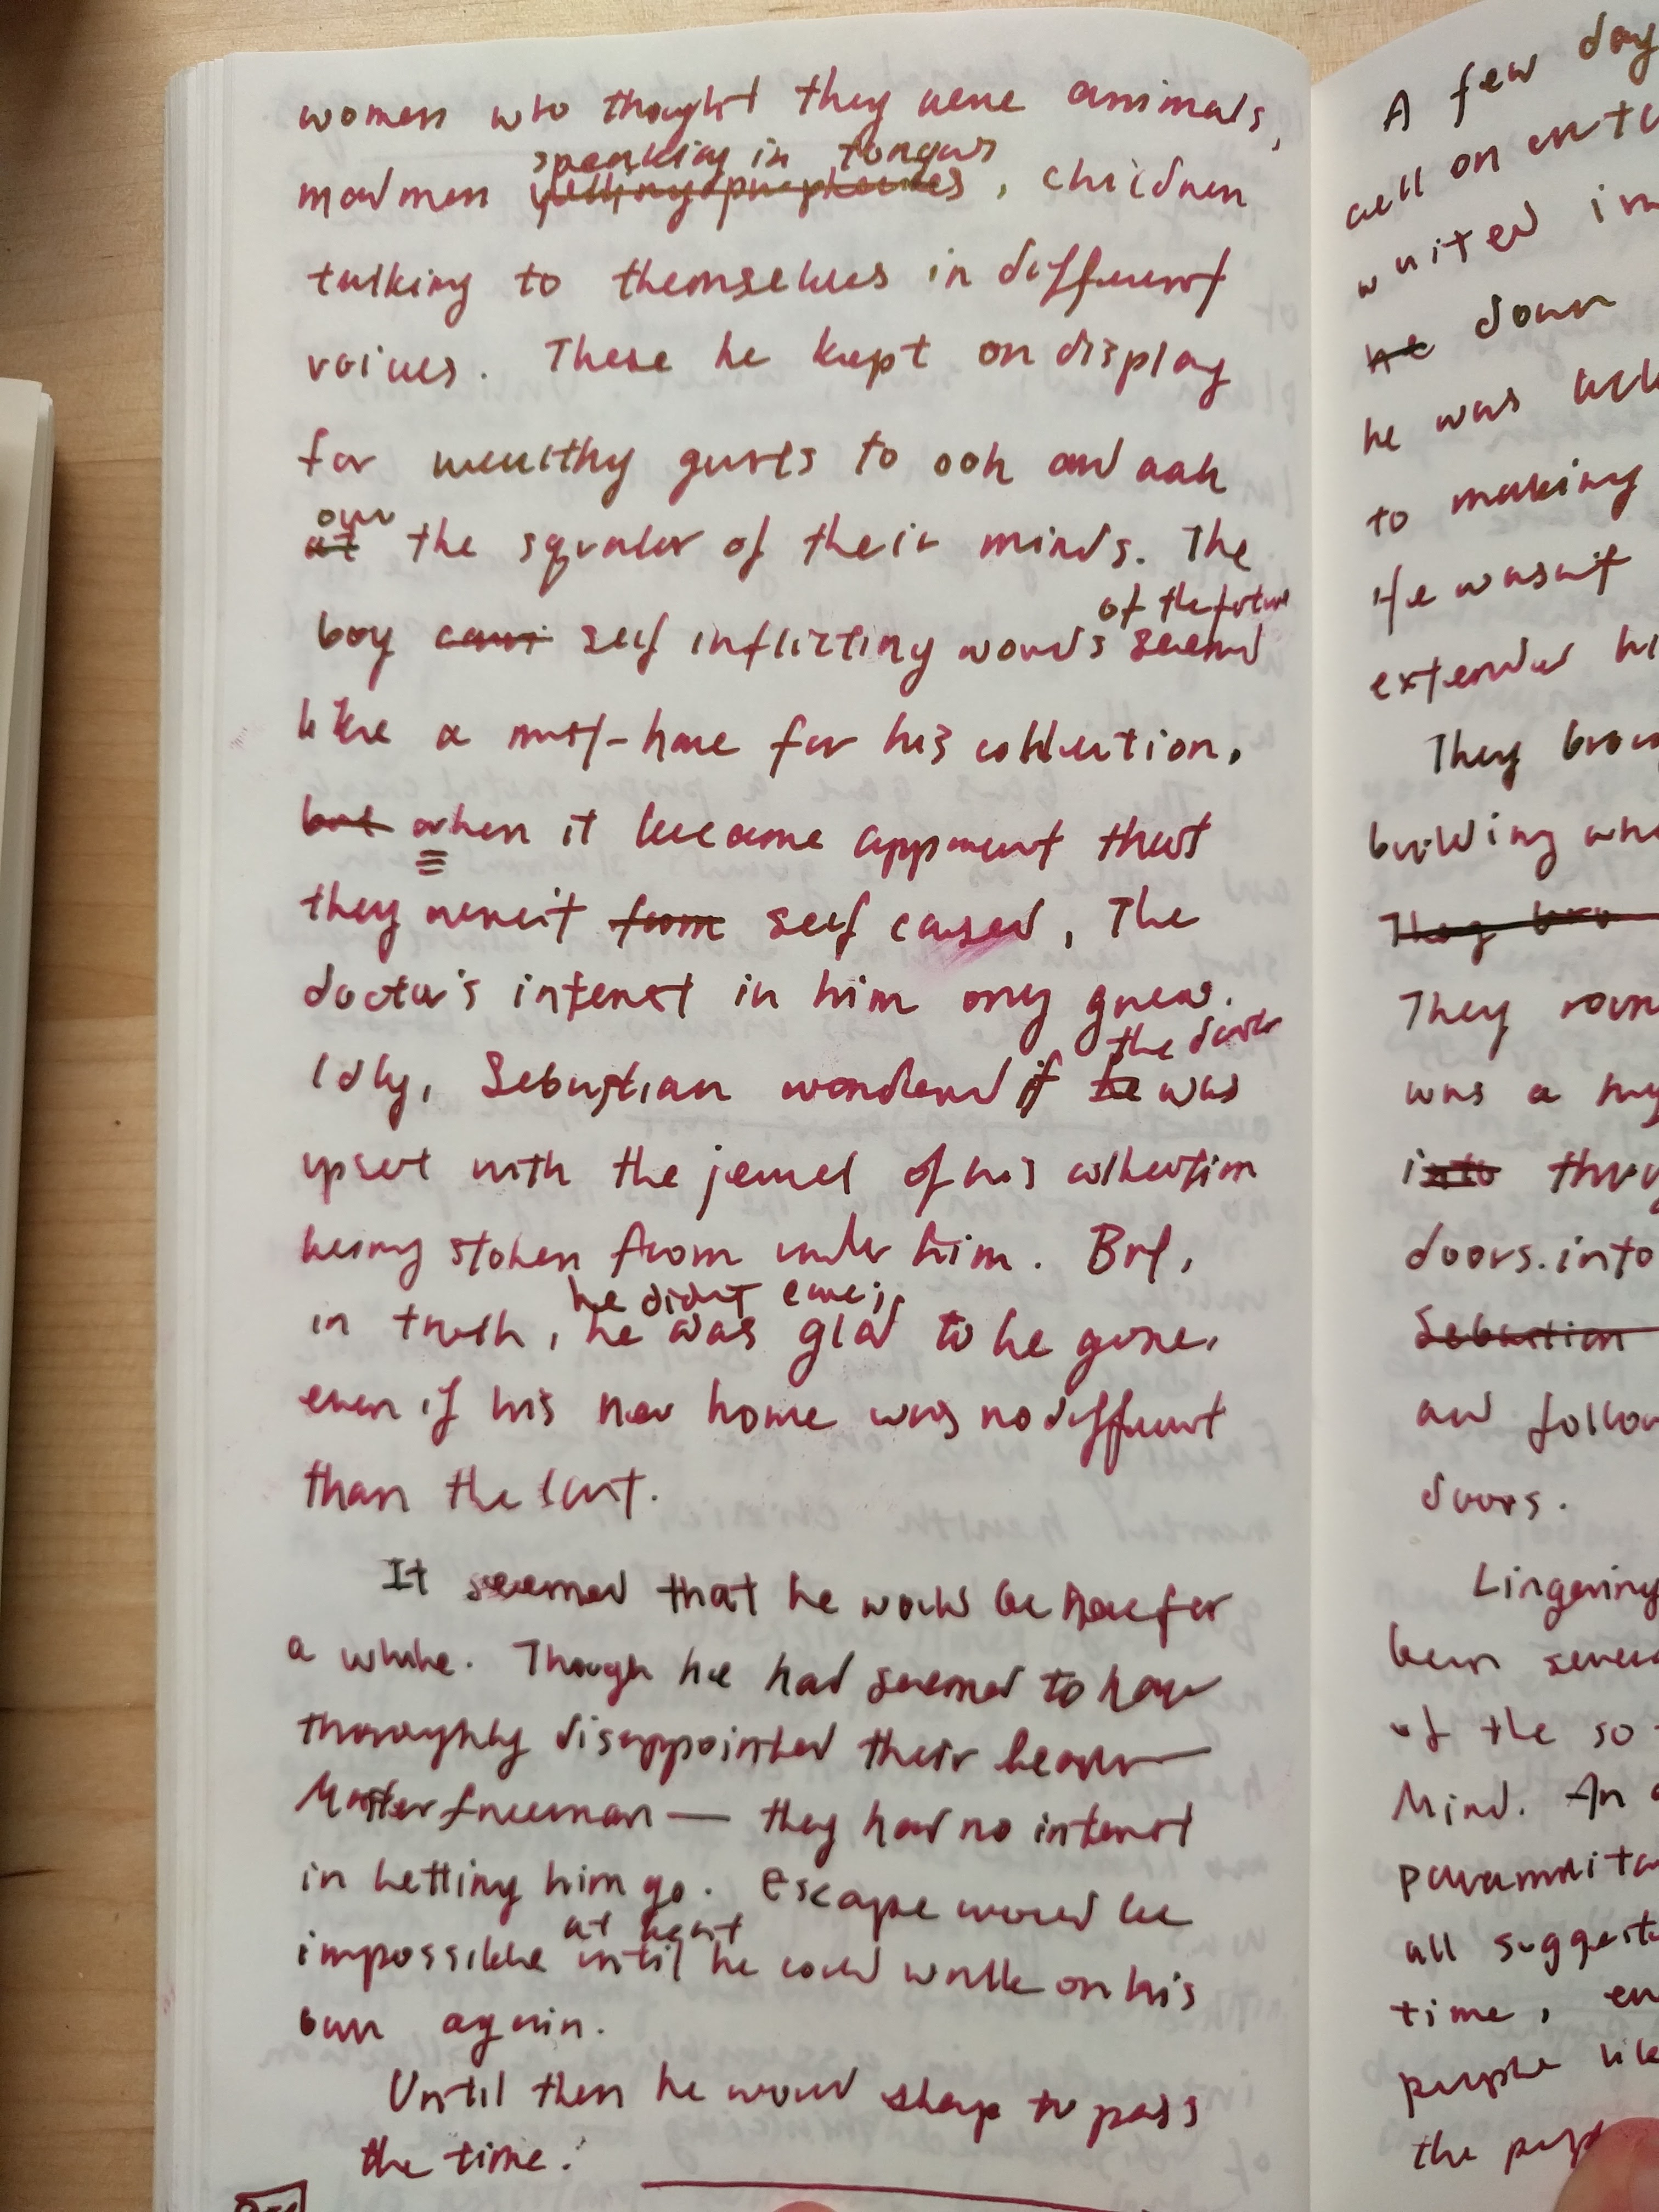 women who thought they were animals,
speaking in tongues
madmen yelling prophecies, children
talking to themselves in different
voices. These he kept on display
for wealthy guests to ooh and aah
over
at the squalor of their minds. The
of the future
boy self inflicting words seemed
like a must-have for his collection.
but when it became apparent that
they weren't from self caused, The
doctor's interest in him only grew.
the doctor
Idly, Sebastian wondered if he was
upset with the jewel of his collection
being stolen from under him. But,
he didn't care;
in truth, he was glad to be gone,
even if his new home was no different
than the last.
It seemed that he would be here for
a while. Though he had seemed to have
thoroughly disappointed their leader—
Master Freeman — they had no interest
in letting him go. Escape would be
at least
impossible until he could walk on his
own again.
Until then he would sleep to pass
the time.
A few day
well on
waited in
he down
he was
to making
He wasn't
extended hi
They brou
building whe
They bro
They roun
was a my
into
doors. into
Sebastian
and follow
doors.
Lingering
been severa
of the so
Mind. An
paramilita
all suggest
time, en
people lik
the